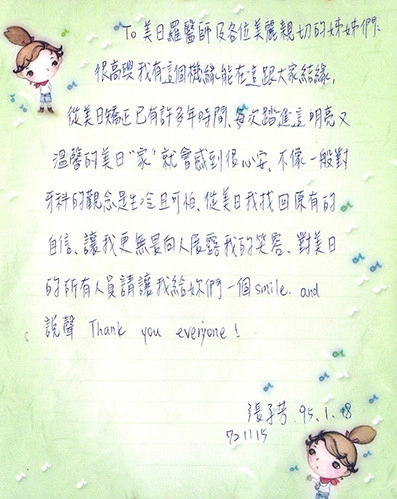 To 美日羅醫師及各位美麗親切的姊姊們:
很高興我有這個機緣能在這跟大家結緣,
從美日矯正已有許多年時間、每次踏進這明亮又
溫馨的美日"家"就會感到很心安、不像一般對
牙科的觀念是生冷且可怕、從美日我找回原有的
自信、讓我更無畏向人展露我的笑容、對美日
的所有人員請讓我給妳們一個smile. and
說聲 Thank you everyone!
張子芳. 95.1.18
721115